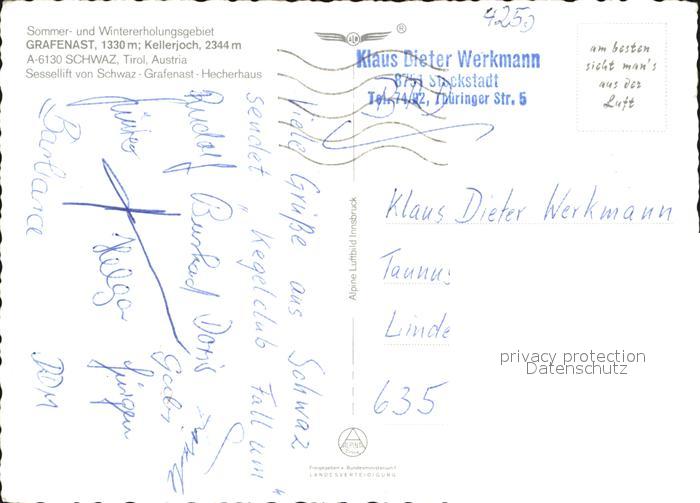 Sommer- und Wintererholungsgebiet
GRAFENAST, 1330 m; Kellerjoch, 2344 m
A-6130 SCHWAZ, Tirol, Austria
Sessellift von Schwaz - Grafenast - Hecherhaus
425,)
Klaus Dieter Werkmann
8751 Stockstadt
Tel. 74/82, Thüringer Str. 5
am besten
sieht man's
aus der
Luft
Viele Grüße aus Schwaz
sendet
"Kegelclub Fall um"
Rudolf Doris
Gaby
Helga Jürgen
Barbara
Alpine Luftbild Innsbruck
Klaus Dieter Werkmann
Taunus
Linde
635
privacy protection
Datenschutz
ALPINE
Freigegeben v. Bundesministerium f.
LANDESVERTEIDIGUNG